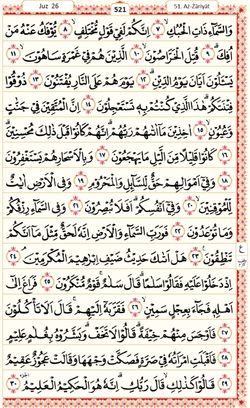 Juz 26
521
51. Az-Zāriyāt
وَالسَّمَآءِ ذَاتِ الْحُبُكِ ۷ اِنَّكُمْ لَفِيْ قَوْلٍ مُّخْتَلِفٍ ۸ يُّؤْفَكُ عَنْهُ مَنْ
اُفِكَ ۹ قُتِلَ الْخَرّٰصُوْنَ ۱۰ الَّذِيْنَ هُمْ فِيْ غَمْرَةٍ سَاهُوْنَ ۱۱
يَسْـَٔلُوْنَ اَيَّانَ يَوْمُ الدِّيْنِ ۱۲ يَوْمَ هُمْ عَلَى النَّارِ يُفْتَنُوْنَ ۱۳ ذُوْقُوْا
فِتْنَتَكُمْ هٰذَا الَّذِيْ كُنْتُمْ بِهٖ تَسْتَعْجِلُوْنَ ۱۴ اِنَّ الْمُتَّقِيْنَ فِيْ جَنّٰتٍ
وَّعُيُوْنٍ ۱۵ اٰخِذِيْنَ مَآ اٰتٰهُمْ رَبُّهُمْ اِنَّهُمْ كَانُوْا قَبْلَ ذٰلِكَ مُحْسِنِيْنَ
۱۶ كَانُوْا قَلِيْلًا مِّنَ الَّيْلِ مَا يَهْجَعُوْنَ ۱۷ وَبِالْاَسْحَارِ هُمْ يَسْتَغْفِرُوْنَ
۱۸ وَفِيْٓ اَمْوَالِهِمْ حَقٌّ لِّلسَّآئِلِ وَالْمَحْرُوْمِ ۱۹ وَفِي الْاَرْضِ اٰيٰتٌ
لِّلْمُوْقِنِيْنَ ۲۰ وَفِيْٓ اَنْفُسِكُمْ اَفَلَا تُبْصِرُوْنَ ۲۱ وَفِي السَّمَآءِ رِزْقُكُمْ
وَمَا تُوْعَدُوْنَ ۲۲ فَوَرَبِّ السَّمَآءِ وَالْاَرْضِ اِنَّهٗ لَحَقٌّ مِّثْلَ مَآ اَنَّكُمْ
تَنْطِقُوْنَ ۲۳ هَلْ اَتٰىكَ حَدِيْثُ ضَيْفِ اِبْرٰهِيْمَ الْمُكْرَمِيْنَ ۲۴
اِذْ دَخَلُوْا عَلَيْهِ فَقَالُوْا سَلٰمًا قَالَ سَلٰمٌ قَوْمٌ مُّنْكَرُوْنَ ۲۵ فَرَاغَ اِلٰٓى
اَهْلِهٖ فَجَآءَ بِعِجْلٍ سَمِيْنٍ ۲۶ فَقَرَّبَهٗٓ اِلَيْهِمْ قَالَ اَلَا تَاْكُلُوْنَ
۲۷ فَاَوْجَسَ مِنْهُمْ خِيْفَةً قَالُوْا لَا تَخَفْ وَبَشَّرُوْهُ بِغُلٰمٍ عَلِيْمٍ
۲۸ فَاَقْبَلَتِ امْرَاَتُهٗ فِيْ صَرَّةٍ فَصَكَّتْ وَجْهَهَا وَقَالَتْ عَجُوْزٌ عَقِيْمٌ
۲۹ قَالُوْا كَذٰلِكِ قَالَ رَبُّكِ اِنَّهٗ هُوَ الْحَكِيْمُ الْعَلِيْمُ ۳۰